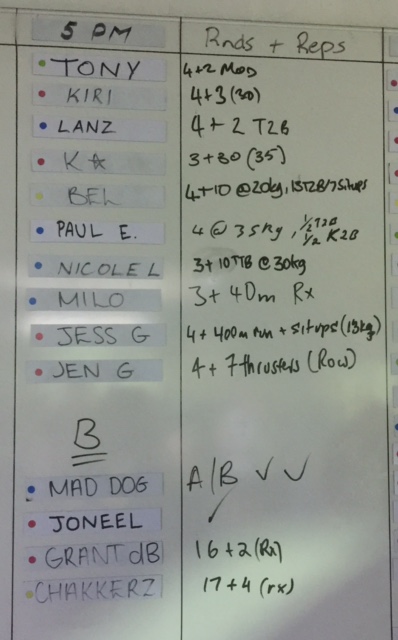 5 PM Rnds + Reps
TONY 4+2 MOD
KIRI 4+3 (30)
LANZ 4+2 T2B
K☆ 3+30 (35)
BEL 4+10 @20kg, 15T2B/7situps
PAUL E. 4 @ 35kg, 1/2 T2B 1/2 K2B
NICOLE L 3+10TTB @30kg
MILO 3+40m Rx
JESS G 4+400m run + situps (13kg)
JEN G 4+7thrusters (Row)
B
MAD DOG A/B ✓ ✓
JONEEL ✓
GRANT dB 16+2 (Rx)
CHAKKERZ 17+4 (rx)